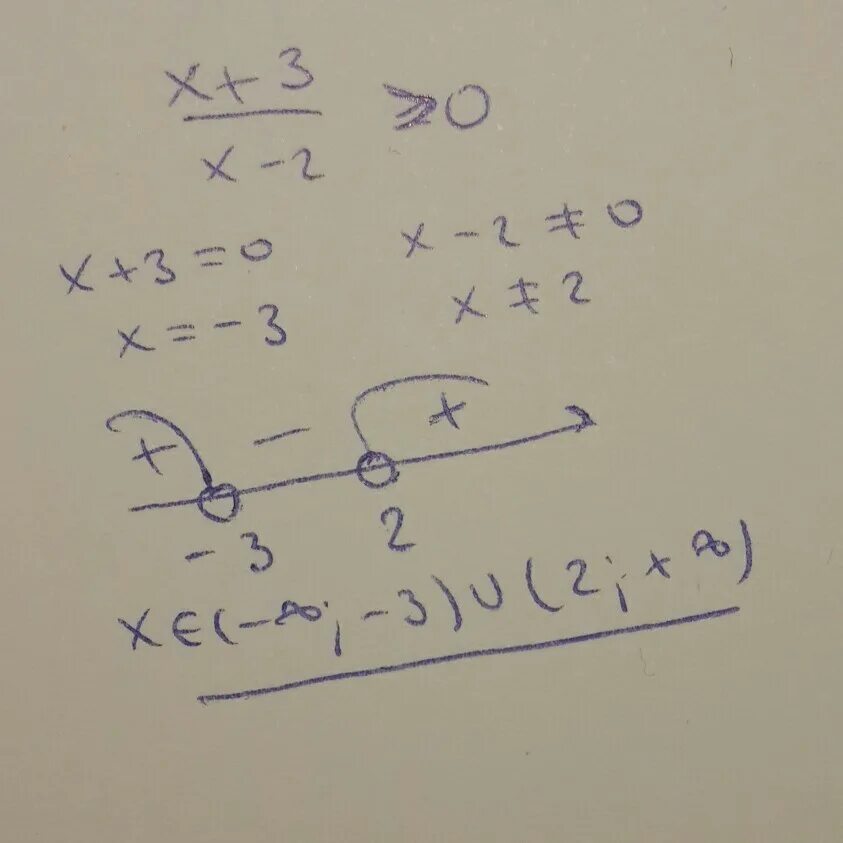 x+3
x-2 ≥0
x+3=0 x-2≠0
x=-3 x≠2
+ - +
-3 2
x∈(-∞;-3)∪(2;+∞)